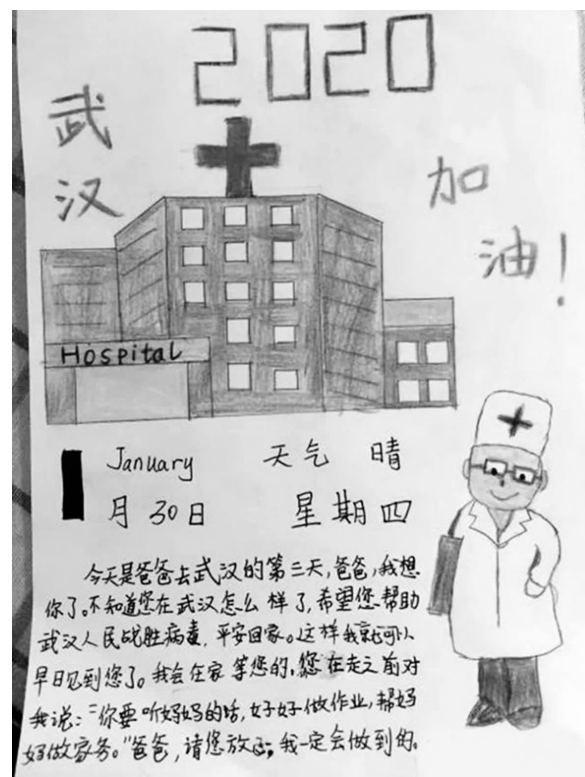 2020
武汉
加油！
Hospital
January 天气 晴
月 30日 星期四
今天是爸爸去武汉的第三天,爸爸,我想
你了。不知道您在武汉怎么样了,希望您帮助
武汉人民战胜病毒,平安回家。这样我就可以
早日见到您了。我会在家等您的,您在走之前对
我说:“你要听妈妈的话,好好做作业,帮妈
妈做家务。”爸爸,请您放心,我一定会做到的。